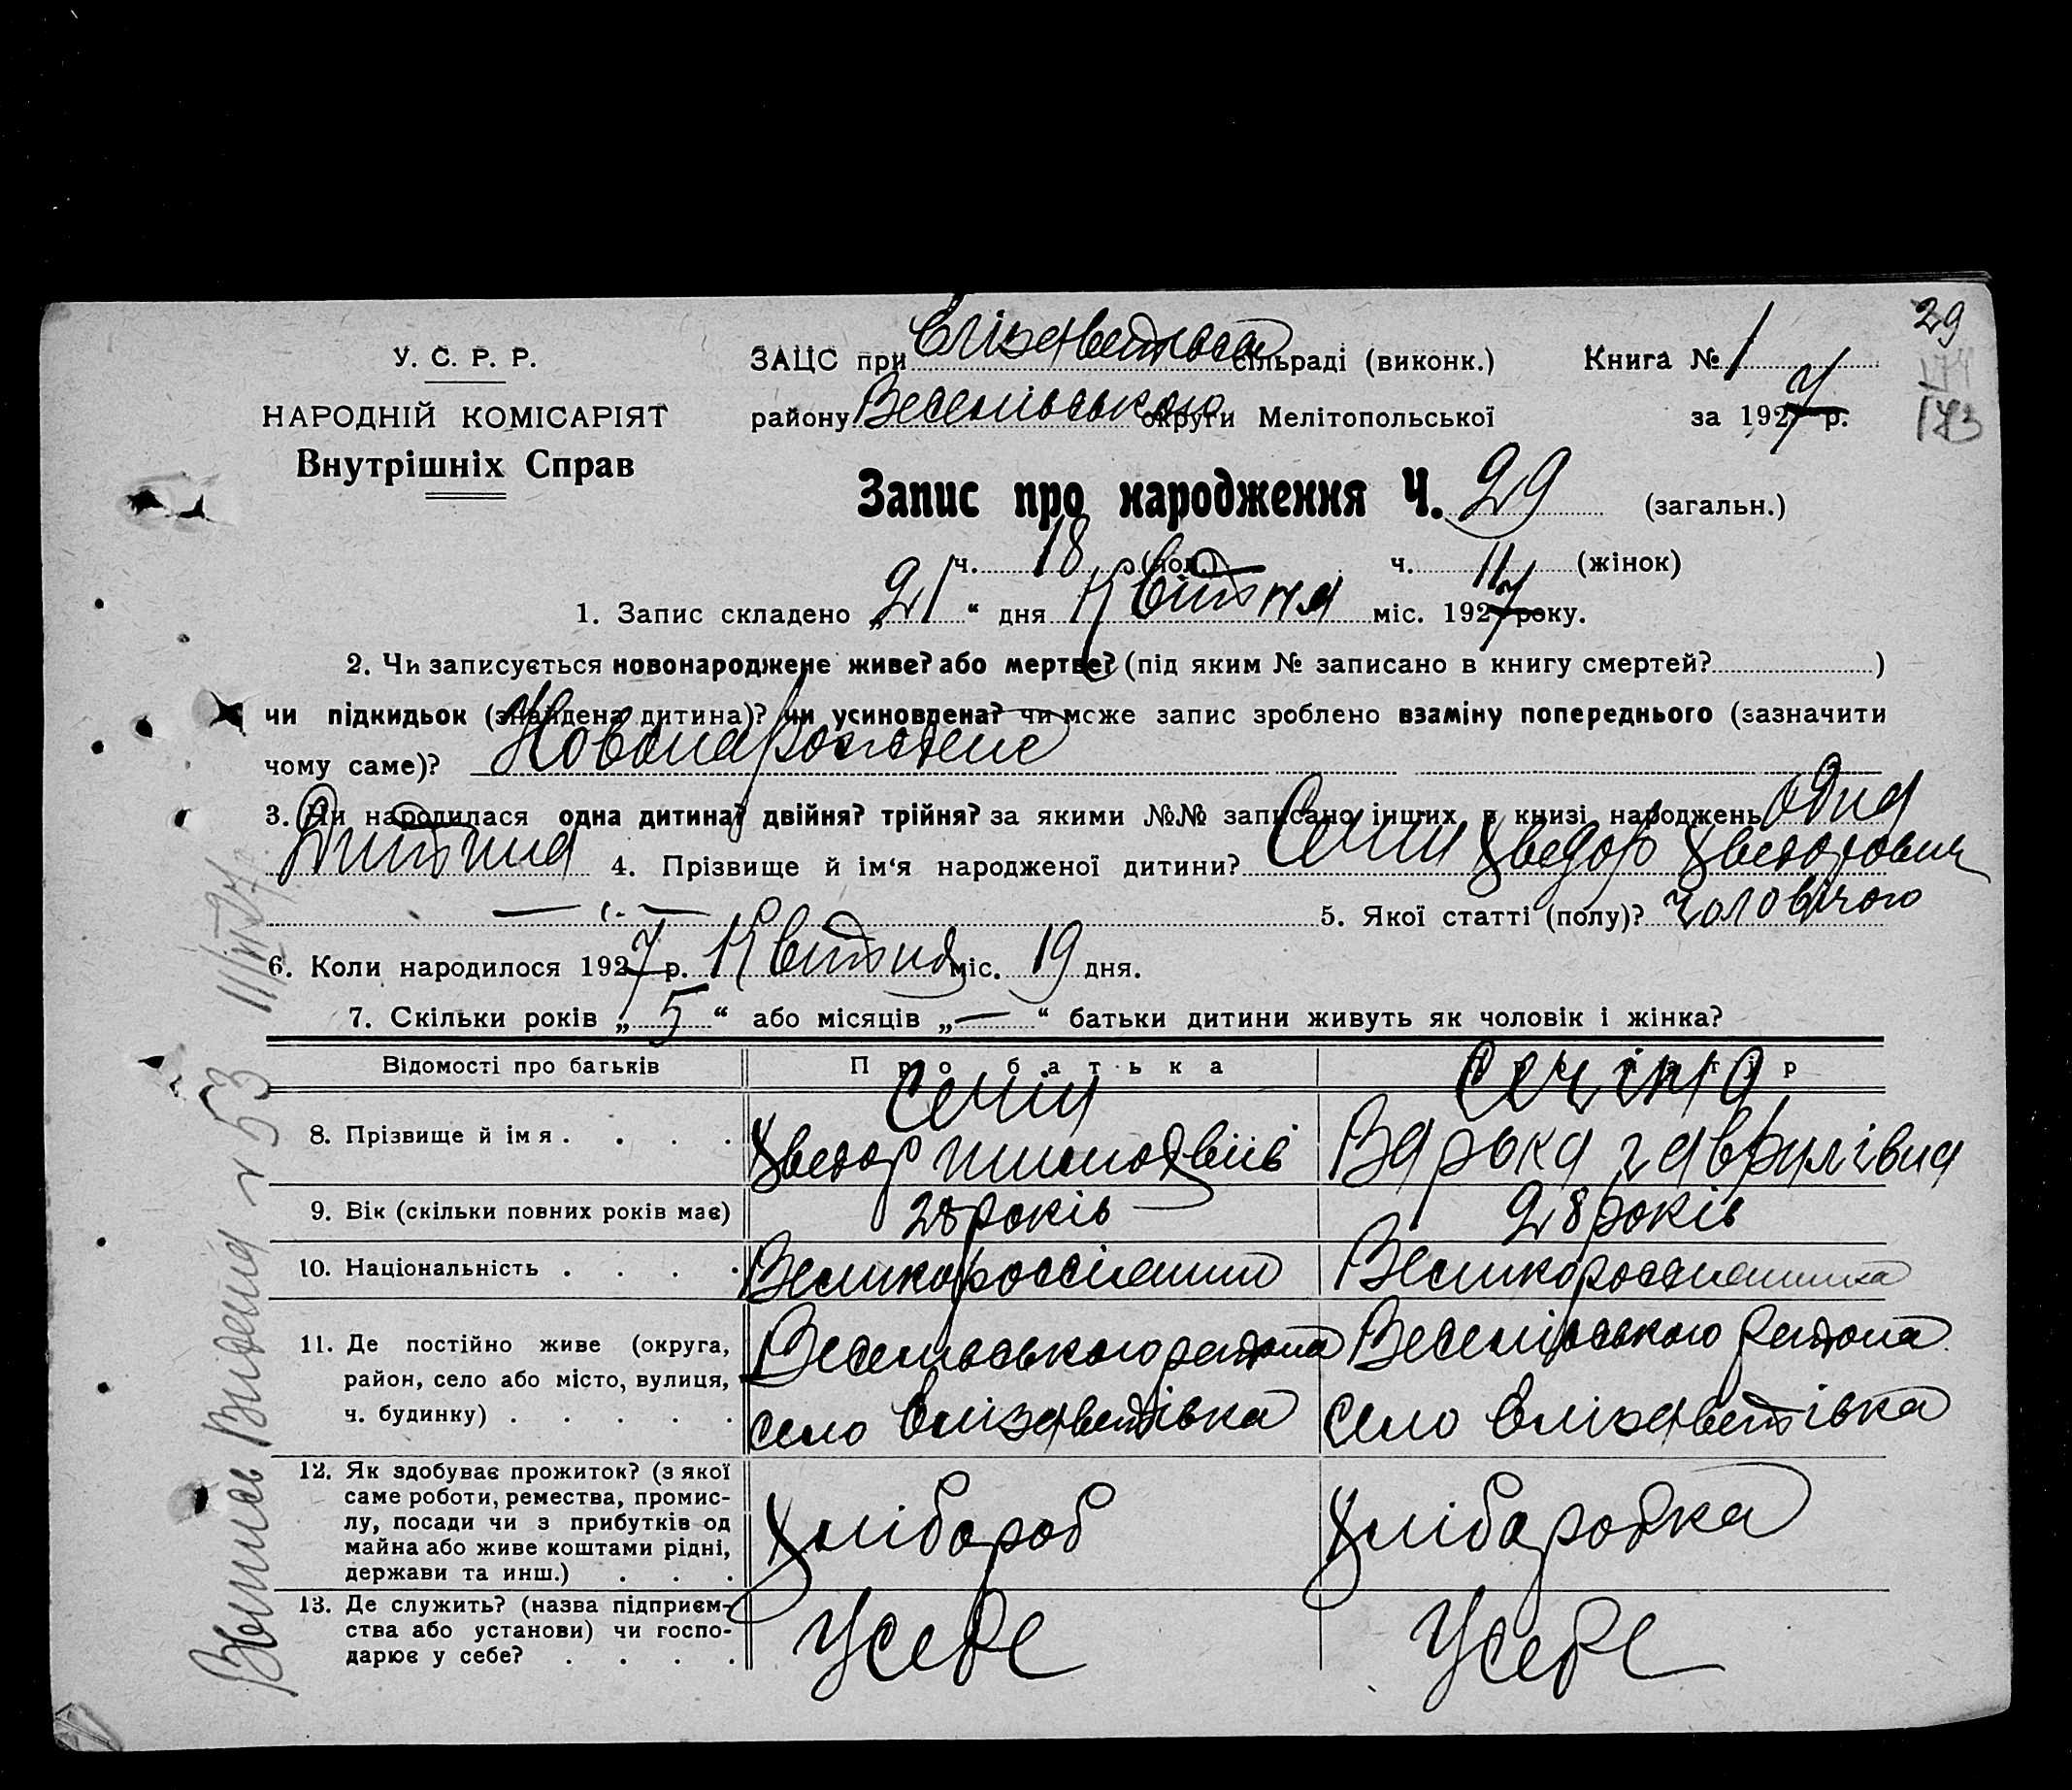 29
У. С. Р. Р.
ЗАЦС при Єлізаветівській сільраді (виконк.)
Книга № 1
НАРОДНІЙ КОМІСАРІЯТ
району Веселівського округи Мелітопольської
за 1927 р.
173
Внутрішніх Справ
Запис про народження Ч. 29 (загальн.)
ч. 18 (чол.) ч. 11 (жінок)
1. Запис складено „21“ дня Квітня міс. 1927 року.
2. Чи записується новонароджене живе? або мертве? (під яким № записано в книгу смертей? )
чи підкидьок (знайдена дитина)? чи усиновлена? чи може запис зроблено взаміну попереднього (зазначити
чому саме)? Новонарожденє
3. Чи народилася одна дитина? двійня? трійня? за якими №№ записано інших в книзі народжень одна
Дитина 4. Прізвище й ім‘я народженої дитини? Сечин Хведор Хведорович
5. Якої статті (полу)? чоловічого
6. Коли народилося 1927 р. Квітня міс. 19 дня.
7. Скільки років „5“ або місяців „—“ батьки дитини живуть як чоловік і жінка?
Відомості про батьків
Про батька
Про матір
8. Прізвище й імя . . . .
Сечин
Хведор
Сечіна
Варька Гаврилівна
9. Вік (скільки повних років має)
28 років
28 років
10. Національність . . . .
Великоросіянин
Великоросіянинка
11. Де постійно живе (округа,
район, село або місто, вулиця,
ч. будинку) . . . . .
Веселівського района
село Єлізаветівка
Веселівського района
село Єлізаветівка
12. Як здобуває прожиток? (з якої
саме роботи, ремества, промис-
лу, посади чи з прибутків од
майна або живе коштами рідні,
держави та инш.) . . .
Хлібороб
Хліборобка
13. Де служить? (назва підприєм-
ства або установи) чи госпо-
дарює у себе? . . . .
У себе
У себе